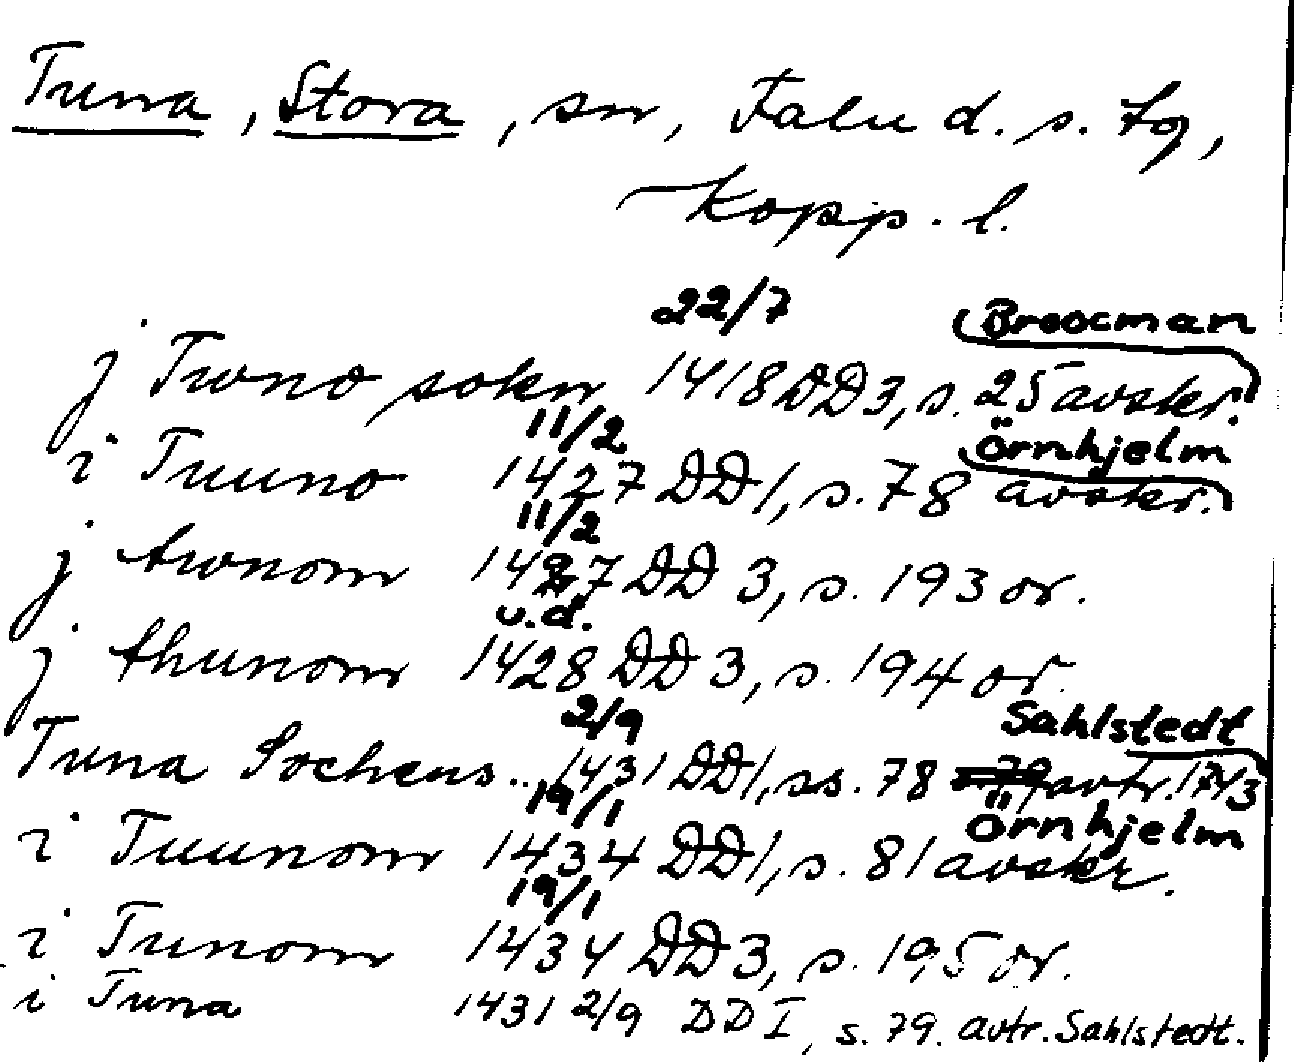 Tuna, Stora, sn, Falu d. s. fg,
Kopp. l.
22/7 Broocman
j Twno sokn 1418 DD3, s. 25 avskr.
11/2 Örnhjelm
i Tuuno 1427 DD1, s. 78 avskr.
11/2
j twnom 1427 DD 3, s. 193 or.
u.d.
j thunom 1428 DD 3, s. 194 or.
2/9 Sahlstedt
Tuna Sochens.. 1431 DD1, ss. 78 - 79 avtr. 1743
19/1 Örnhjelm
i Tuunom 1434 DD1, s. 81 avskr.
19/1
i Tunom 1434 DD3, s. 195 or.
i Tuna 1431 2/9 DD I, s. 79. avtr. Sahlstedt.